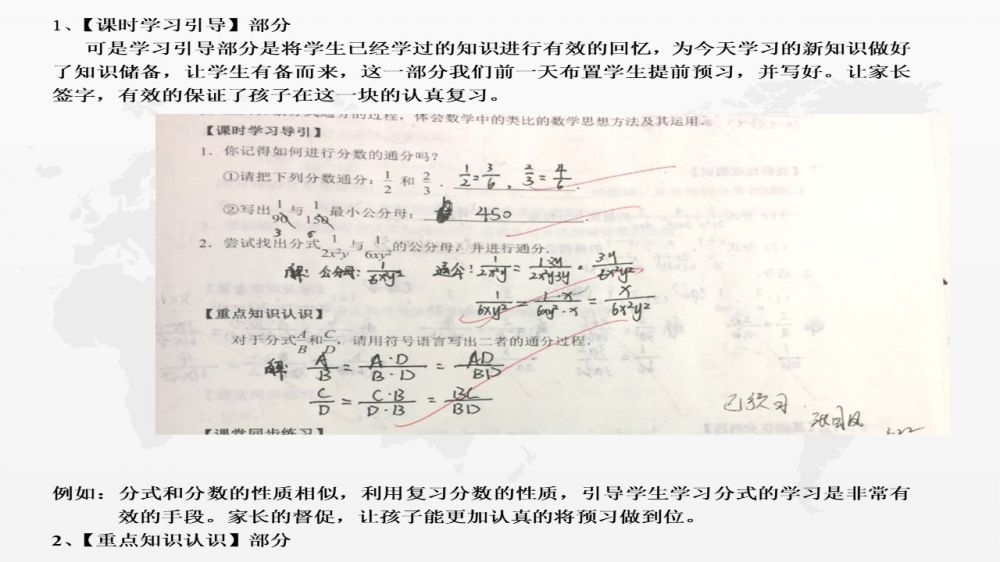 1、【课时学习引导】部分
可是学习引导部分是将学生已经学过的知识进行有效的回忆，为今天学习的新知识做好
了知识储备，让学生有备而来，这一部分我们前一天布置学生提前预习，并写好。让家长
签字，有效的保证了孩子在这一块的认真复习。
分式通分的过程，体会数学中的类比的数学思想方法及其运用.
【课时学习导引】
1．你记得如何进行分数的通分吗？
①请把下列分数通分：1/2 和 2/3． 1/2=3/6，2/3=4/6.
②写出 1/90 与 1/150 最小公分母： 450
3 5
2．尝试找出分式 1/2x²y 与 1/6xy² 的公分母，并进行通分.
解：公分母：1/6x²y² 通分：1/2x²y = 1·3y/2x²y·3y = 3y/6x²y²
1/6xy² = 1·x/6xy²·x = x/6x²y²
【重点知识认识】
对于分式 A/B 和 C/D，请用符号语言写出二者的通分过程.
解：A/B = A·D/B·D = AD/BD
C/D = C·B/D·B = BC/BD
已预习
【课堂同步练习】
例如：分式和分数的性质相似，利用复习分数的性质，引导学生学习分式的学习是非常有
效的手段。家长的督促，让孩子能更加认真的将预习做到位。
2、【重点知识认识】部分